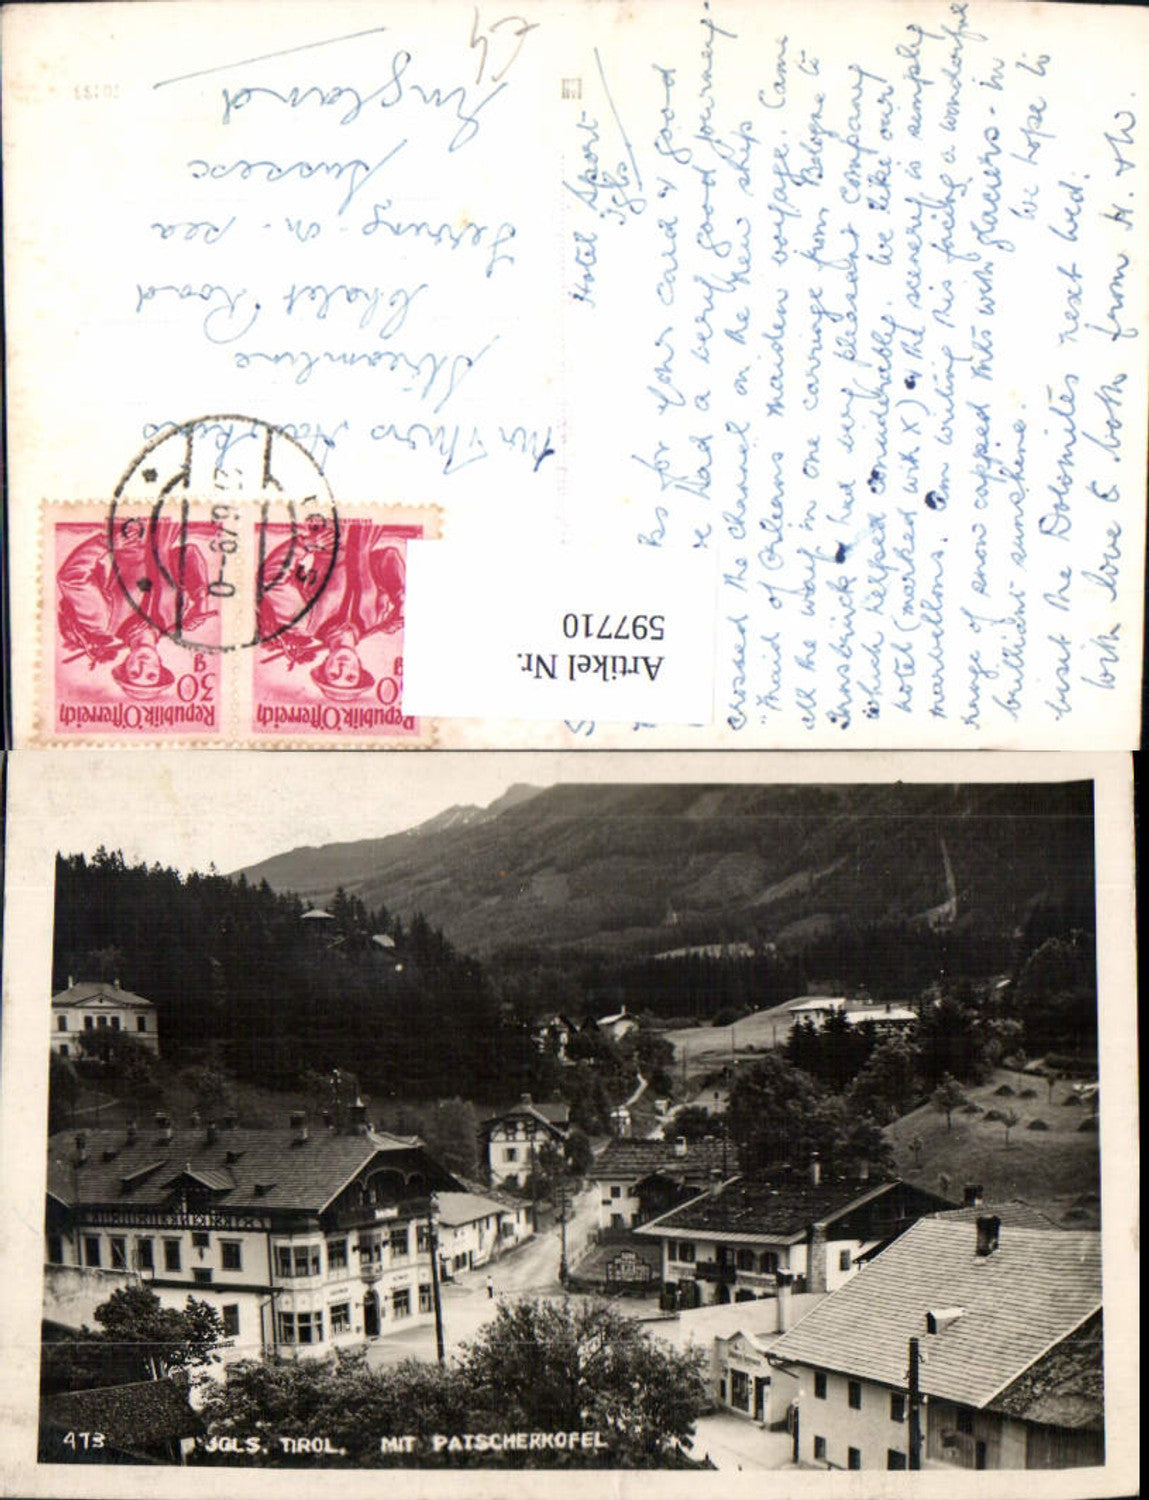 Hotel Sport
Igls
for your card & good
had a very good journey-
crossed the channel on the new ship
"Maid of Orleans maiden voyage. Came
all the way in one carriage from Bologne to
Innsbrück & had very pleasant company
which helped considerably. We like our
hotel (marked with X) & the scenery is simply
marvellous. Am writing this facing a wonderful
range of snow capped mts with glaciers - in
brilliant sunshine. We hope to
visit the Dolomites next wed.
With love & both from H. & W.
Mr & Mrs
Streamline
Chalet Road
Ferring-on-sea
Sussex
England
Republik Österreich
30
g
Republik Österreich
0
g
IGLS
Artikel Nr.
597710
473 IGLS, TIROL. MIT PATSCHERKOFEL